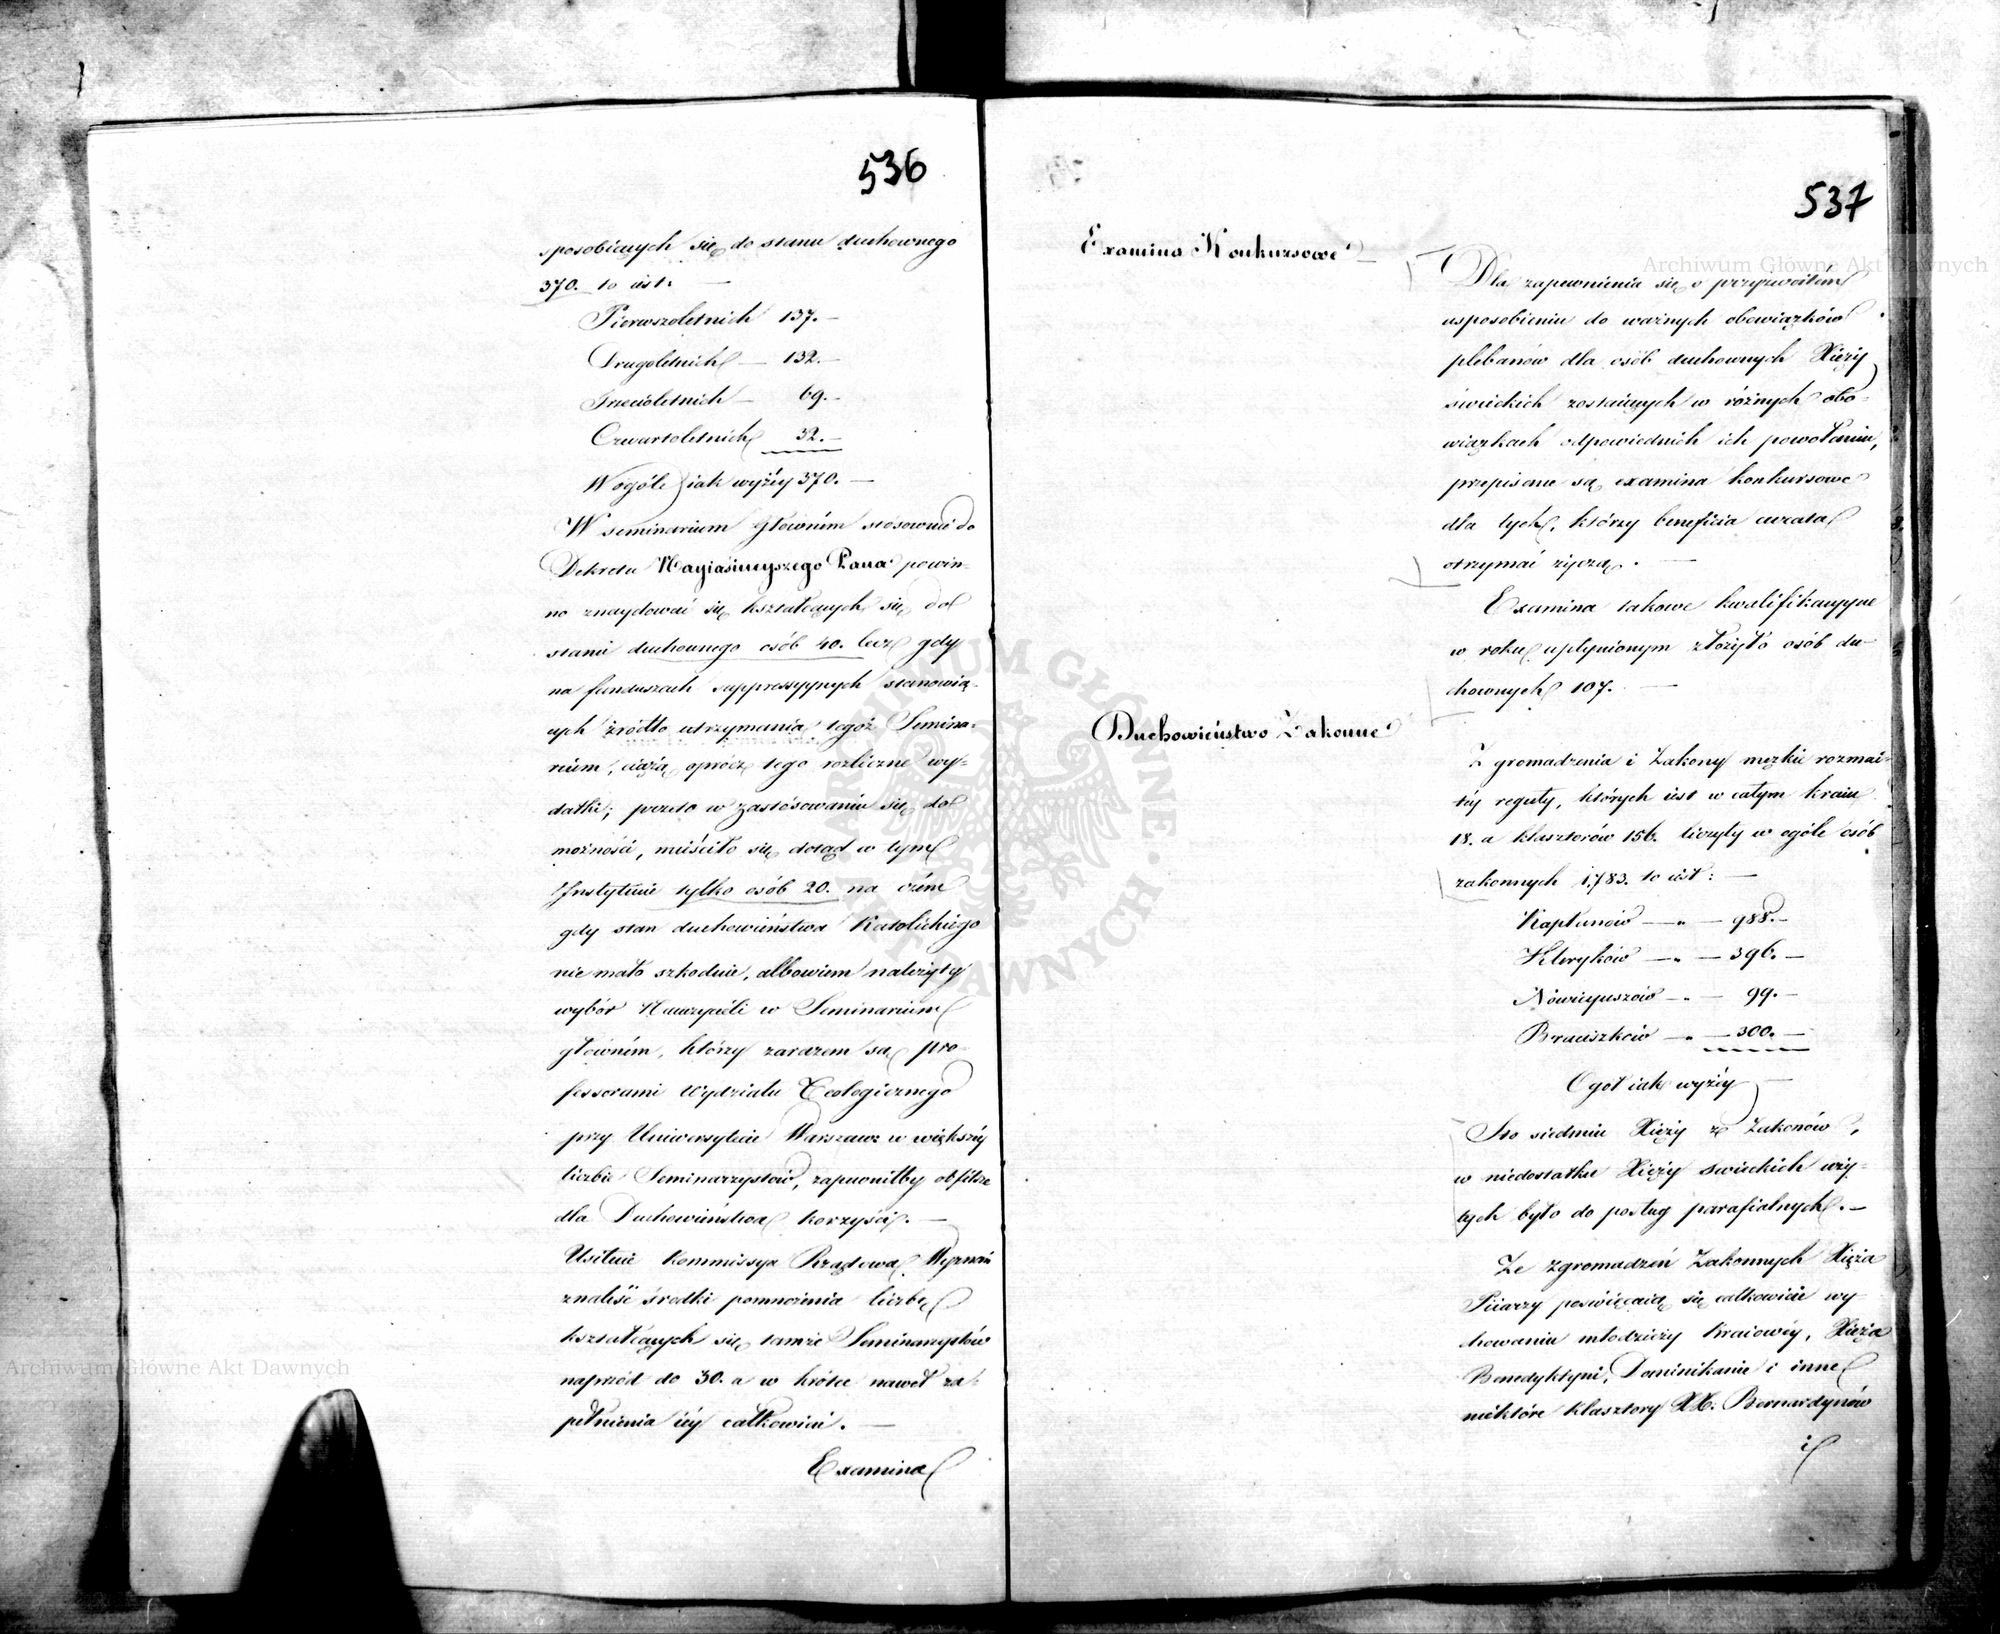 536
sposobiących się do stanu duchownego
370. to iest:
Pierwszoletnich 137.
Drugoletnich — 132.
Trzecioletnich — 69.
Czwartoletnich 32.
W ogóle iak wyżéy 370. —
W seminarium głowném stosownie do
Dekretu Nayiaśnieyszego Pana powin-
no znaydować się kształcących się do
stanu duchownego osób 40. lecz gdy
na funduszach suppressyynych stanowią-
cych źródło utrzymania tegoż Semina-
rium, ciążą oprócz tego rozliczne wy-
datki; przeto w zastósowaniu się do
możności, mieściło się dotąd w tym
Instytucie tylko osób 20. na czém
gdy stan duchowieństwa Katolickiego
nie mało szkoduie, albowiem należyty
wybór Nauczycieli w Seminarium
głowném, którzy zarazem są pro-
fessorami Wydziału Teologicznego
przy Uniwersytecie Warszaws: w większéy
liczbie Seminarzystów, zapewniłby obfitsze
dla Duchowieństwa korzyści. —
Usiłuie Kommissya Rządowa Wyznań
znaleść środki pomnożenia liczby
kształcących się tamże Seminarzystów
naprzód do 30. a w krótce nawet za-
pełnienia iéy całkowicie. —
Examina
537
Examina Konkursowe
Dla zapewnienia się o przyzwoitém
usposobieniu do ważnych obowiązków
plebanów dla osób duchownych Xięży
świeckich zostaiących w różnych obo-
wiązkach odpowiednich ich powołaniu,
przepisane są examina konkursowe
dla tych, którzy beneficia curata
otrzymać życzą. —
Examina takowe kwalifikacyyne
w roku upłynionym złożyło osób du-
chownych 107. —
Duchowieństwo Zakonne
Zgromadzenia i Zakony męzkie rozmai-
téy reguły, których iest w całym kraiu
18. a klasztorów 156. liczyły w ogóle osób
zakonnych 1,783. to iest: —
Kapłanów — „ — 988. —
Kleryków — „ — 396. —
Nowicyuszów — „ — 99. —
Braciszków — „ — 300. —
Ogół iak wyżéy —
Sto siedmiu Xięży z Zakonów,
w niedostatku Xięży świeckich uży-
tych było do posług parafialnych. —
Ze zgromadzeń Zakonnych Xięża
Piiarzy poświęcaią się całkowicie wy-
chowaniu młodzieży kraiowéy, Xięża
Benedyktyni, Dominikanie i inne
niektóre klasztory XX. Bernardynów
i
Archiwum Główne Akt Dawnych
Archiwum Główne Akt Dawnych
ARCHIWUM GŁÓWNE AKT DAWNYCH